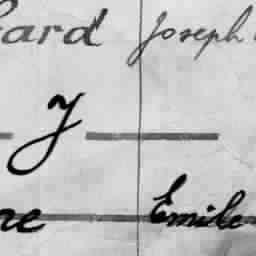 ard Joseph
y
ne Emile